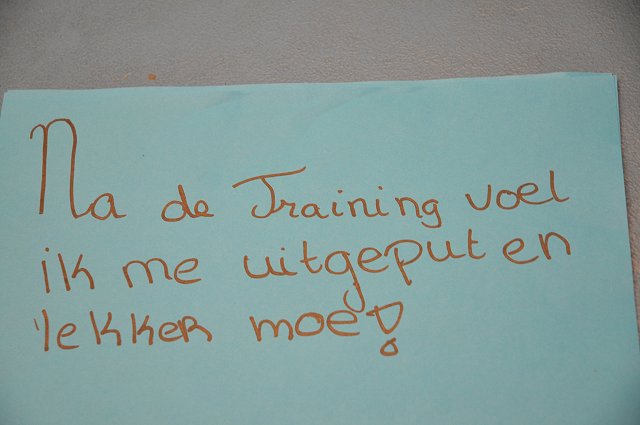 Na de Training voel
ik me uitgeput en
lekker moe!